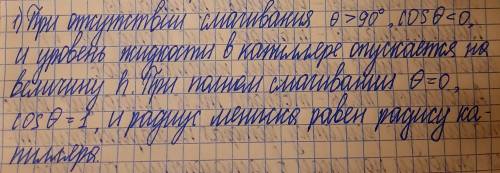 1) При отсутствии смачивания θ>90°, cosθ<0,
и уровень жидкости в капилляре опускается на
величину h. При полном смачивании θ=0,
cosθ=1, и радиус мениска равен радиусу ка-
пилляра.